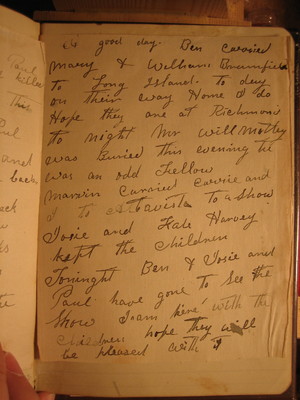 Paul
killed
This
Paul
and
back
is good day. Ben carried
Mary & William Brumfield
to Long Island. to day
on their way Home I do
Hope they are at Richmond
to night Mr Will Motley
was Buried this evening he
was an odd Fellow
Marvin Carried Carrie and
I to Altavista to a Show
Josie and Kate Harvey
kept the children
Toninght Ben & Josie and
Paul have gone to See the
Show I am here with the
children hope they will
be pleased with it